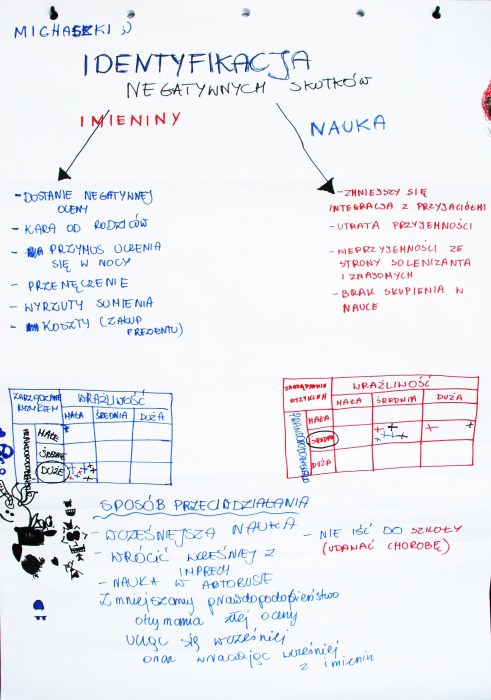 MICHASZKI ;)
IDENTYFIKACJA
NEGATYWNYCH SKUTKÓW
IMIENINY
- DOSTANIE NEGATYWNEJ
OCENY
- KARA OD RODZICÓW
- PRZYMUS UCZENIA
SIĘ W NOCY
- PRZEMĘCZENIE
- WYRZUTY SUMIENIA
- KOSZTY (ZAKUP
PREZENTU)
NAUKA
- ZMNIEJSZY SIĘ
INTEGRACJA Z PRZYJACIÓŁMI
- UTRATA PRZYJEMNOŚCI
- NIEPRZYJEMNOŚCI ZE
STRONY SOLENIZANTA
I ZNAJOMYCH
- BRAK SKUPIENIA W
NAUCE
ZARZĄDZANIE
RYZYKIEM
WRAŻLIWOŚĆ
MAŁA ŚREDNIA DUŻA
PRAWDOPODOBIEŃSTWO
MAŁE
ŚREDNIE
DUŻE
ZARZĄDZANIE
RYZYKIEM
WRAŻLIWOŚĆ
MAŁA ŚREDNIA DUŻA
PRAWDOPODOBIEŃSTWO
MAŁA
ŚREDNIE
DUŻA
SPOSÓB PRZECIWDZIAŁANIA
- WCZEŚNIEJSZA NAUKA
- WRÓCIĆ WCZEŚNIEJ Z
IMPREZY
- NAUKA W AUTOBUSIE
Zmniejszamy prawdopodobieństwo
otrzymania złej oceny
ucząc się wcześniej
oraz wracając wcześniej
z imienin
- NIE IŚĆ DO SZKOŁY
(UDAWAĆ CHOROBĘ)